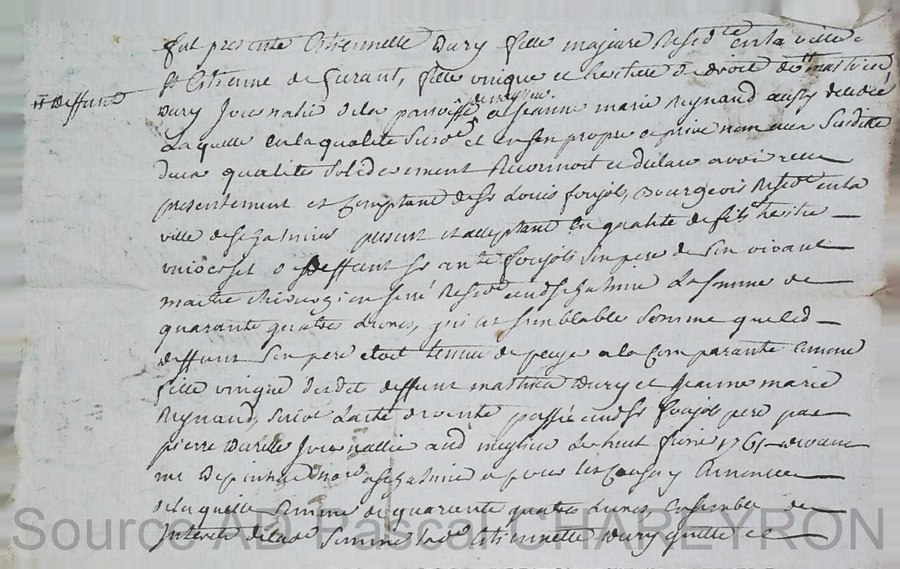 fut presente Estiennelle Dury fille majeure Resid.te en la ville
St Estienne de furant, fille unique et heritiere de droit de ++ mathieu
++ deffunt
Dury Journalié de la paroisse de meyrieu et Jeanne marie Reynaud aussy
Laquelle en la qualité et en son propre et privé nom
dela qualité solidairement Reconnoit avoir receu
presentement et Comptant de Sr Louis foujols, Bourgeois Resid.t en la
ville de present et acceptant En qualité de fils heritier
universel de deffunt Sr ante foujols Son pere de Son vivant
maitre chirurgien juré La Somme de
quarante quatre Livres, qui est semblable Somme que led
deffunt Son pere etoit tenu de paye a la Comparante Comme
fille unique dudit deffunt mathieu Dury et Jeanne marie
Reynaud, Suivt Lacte de vente passé aud Sr foujols pere par
pierre Journallié aud Le huit 1761 devant
me nore et pour les Causes y Enoncée
de laquelle Somme de quarante quatre Livres, Ensemble des
Interets de lad Somme lad Estiennette Dury quitte et
Source AD Pascal CHAREYRON